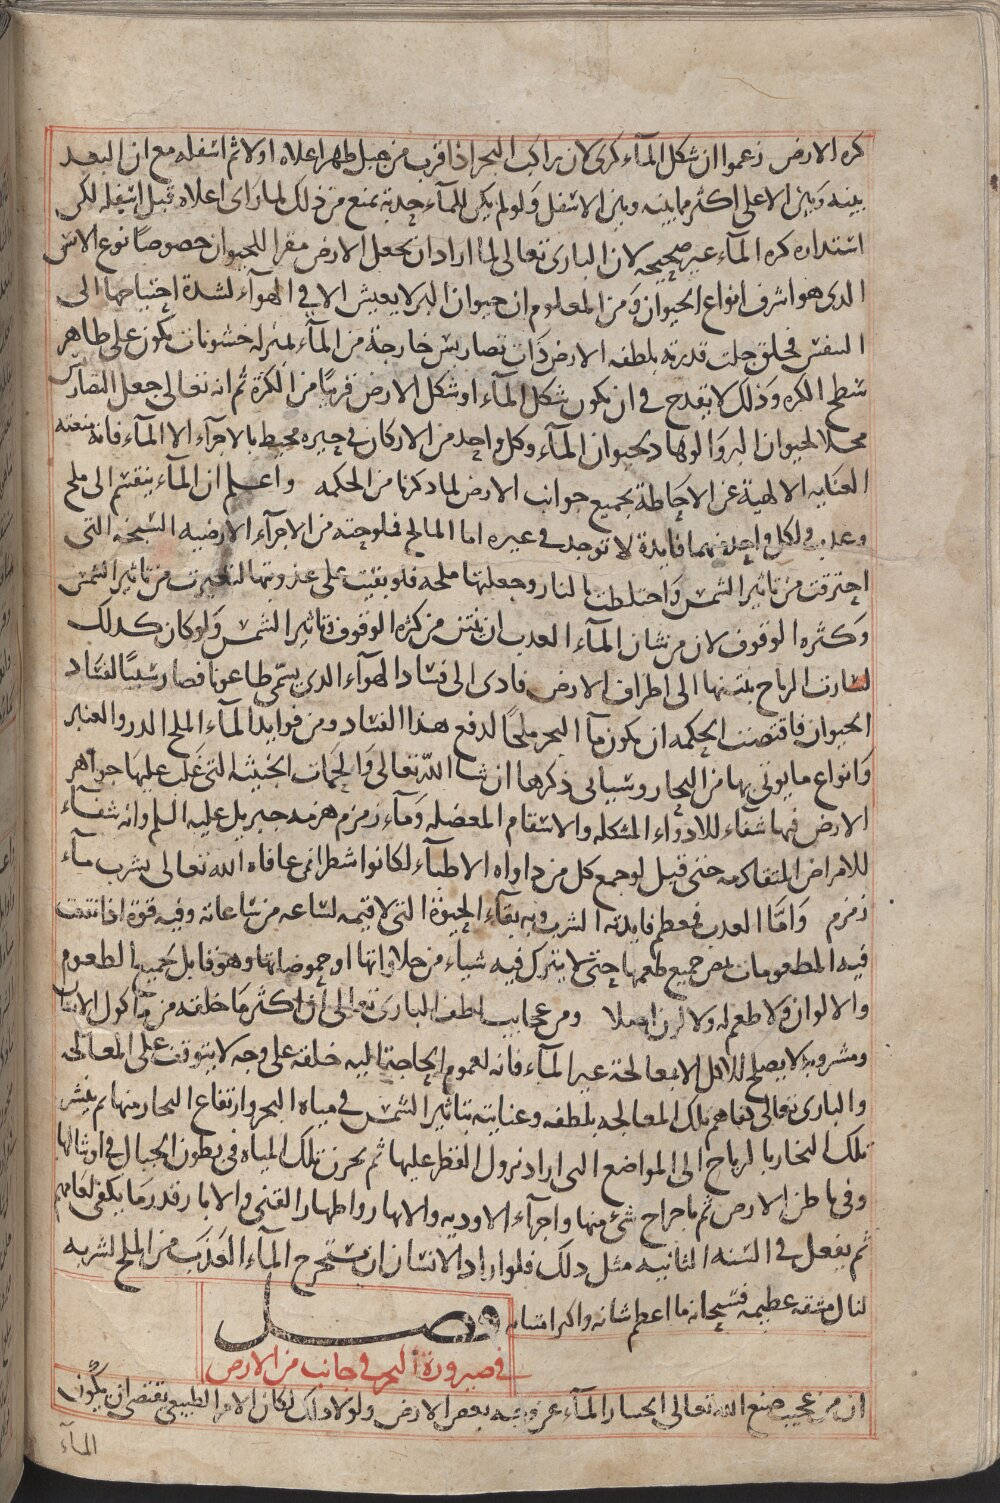 كره الارض زعموا ان شكل المآء كرى لان راكب البحر اذا قرب من جبل ظهر اعلاه اولا ثم اسفله مع ان البعد
بينه وبين الاعلى اكثر مما بينه وبين الاسفل ولو لم يكن للمآء حدبة تمنع من ذلك لما راى اعلاه قبل اسفله لكن
استداره كره المآء غير صحيحه لان البارى تعالى لما اراد ان يجعل الارض مقرا للحيوان خصوصا نوع الانس
الدى هو اشرف انواع الحيوان ومن المعلوم ان حيوان البر لا يعيش الا فى الهوآء لشدة احتياجها الى
النفس فخلق جلت قدرته بلطفه الارض ذات تضاريس خارجة من المآء بمنزله خشونات تكون على ظاهر
سطح الكره وذلك لا يقدح فى ان يكون شكل المآء او شكل الارض قريبا من الكرة ثم انه تعالى جعل التضاريس
محلا لحيوان البر والوهاد لحيوان المآء وكل واحد من الاركان فى حيزه محيط بالاجرآء الا المآء فانه منعته
العنايه الالهية عن الاحاطة بجميع جوانب الارض لما دكرنا من الحكمه واعلم ان المآء ينقسم الى ملح
وعدب ولكل واحد منهما فايدة لا توجد فى غيره اما المالح فملوحته من الاجرآء الارضيه السبخه التى
احترقت من تاثير الشمس واختلطت بالنار وجعلتها ملحه فلو بقيت على عذوبتها لتغيرت من تاثير الشمس
وكثره الوقوف لان من شان المآء العدب ان ينتن من كثره الوقوف وتاثير الشمس ولو كان كدلك
لسارت الرياح بنتنها الى اطراف الارض فادى الى فساد الهوآء الدى يسمى طاعونا فصار سببا لفساد
الحيوان فاقتضت الحكمه ان يكون مآ البحر ملحا لدفع هذا الفساد ومن فوايد المآء الملح الدر والعنبر
وانواع ما يوتى بها من البحار وسياتى دكرها ان شا الله تعالى والحمات الخبيثه التى غلب عليها جواهر
الارض فيها شفاء للادوآء المشكله والاسقام المعضله ومآء زمزم هزمه جبريل عليه السلم وانه شفآء
للامراض المتفاكمه حتى قيل لو جمع كل من داواه الاطبآء لكانوا شطرا ممن عافاه الله تعالى بشرب مآء
زمزم واما العدب فمعظم فايدته الشرب وبه بقآء الحيوة التى لا قيمه لساعه من ساعاته وفيه قوة اذا نقعت
فيه المطعومات يمص جميع طعمها حتى لا يترك فيه شياء من حلاواتها او حموضاتها وهو قابل لجميع الطعوم
والالوان ولا طعم له ولا لون اصلا ومن عجايب لطف البارى تعالى ان اكثر ما خلقه من ماكول الانسان
ومشروبه لا يصلح للاكل الا بمعالجة غير المآء فانه لعموم الحاجة اليه خلقه على وجه لا يتوقف على المعالجه
والبارى تعالى كفاهم تلك المعالجه بلطفه وعنايته بتاثير الشمس فى مياه البحر وارتفاع البخار منها ثم ينشر
تلك البخار بالرياح الى المواضع التى اراد نزول القطر عليها ثم يخزن تلك المياه فى بطون الجبال فى اوشالها
وفى باطن الارض ثم باخراج شئ منها واجرآء الاوديه والانهار واظهار القنى والابار قدر ما يكفى لعامهم
ثم يفعل فى السنه الثانيه مثل دلك فلو اراد الانسان ان يستخرج المآء العذب من الملح لشربه
لنال مشقه عظيمه فسبحانه ما اعظم شانه واكبر امتنانه
فصل
فى صيرورة البحر فى جانب من الارض
ان من عجيب صنع الله تعالى انحسار المآء عن وجه بعض الارض ولولا دلك لكان الامر الطبيعى يقتضى ان يكون
المآء